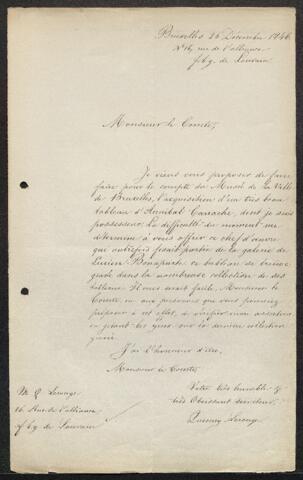 Bruxelles 26 Décembre 1846
N° 16, rue de l'alliance
fbg. de Louvain
Monsieur le Comte,
Je viens vous proposer de faire
faire pour le compte du Musée de la Ville
de Bruxelles, l'acquisition d'un très beau
tableau d'Annibal Carrache, dont je suis
possesseur. La difficulté du moment me
détermine à vous offrir ce chef d'œuvre
qui autrefois faisait partie de la galerie de
Lucien Bonaparte ce tableau se trouve
gravé dans la nombreuse collection de ses
tableaux. Il vous serait facile, Monsieur le
Comte ou aux personnes que vous pourriez
proposer à cet effet, de vérifier mon assertion
en jetant les yeux sur la dernière collection
gravée.
J'ai l'honneur d'être,
Monsieur le Comte,
Votre très humble &
très Obéissant serviteur
M Lerouge
16, Rue de l'alliance
fbg. de Louvain
Lerouge